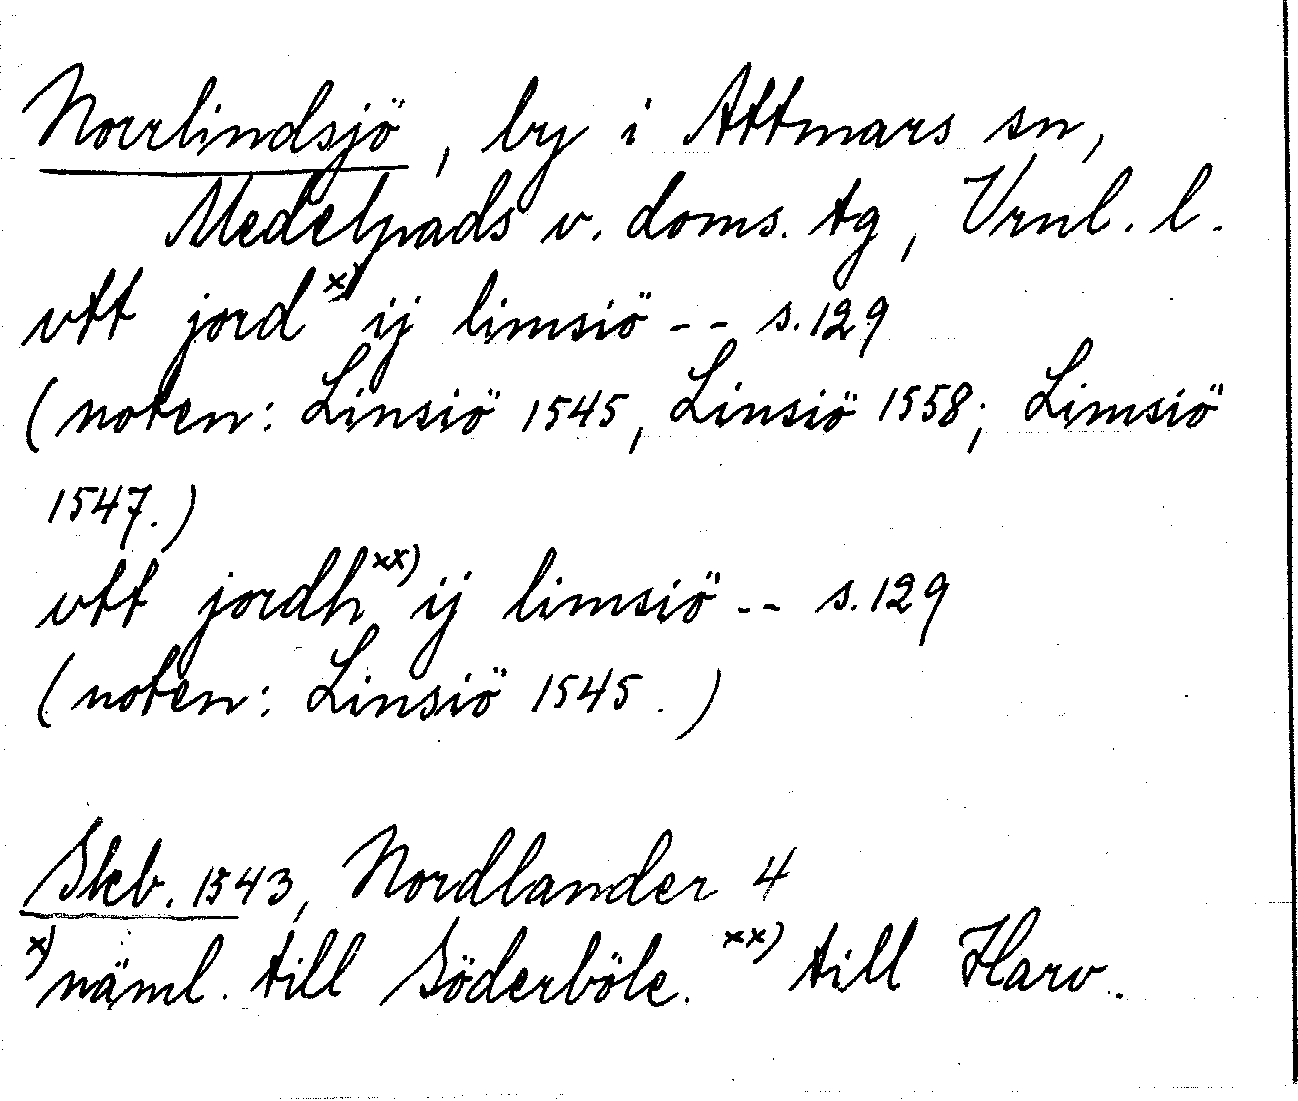 Norrlindsjö, by i Attmars sn,
Medelpads v. doms. tg, Vrnl. l.
vtt jord x) ij limsiö -- s. 129
(noten: Linsiö 1545, Linsiö 1558; Limsiö
1547.)
vtt jordh xx) ij limsiö -- s. 129
(noten: Linsiö 1545.)
Skb. 1543, Nordlander 4
x) näml. till Söderböle. xx) till Harv.